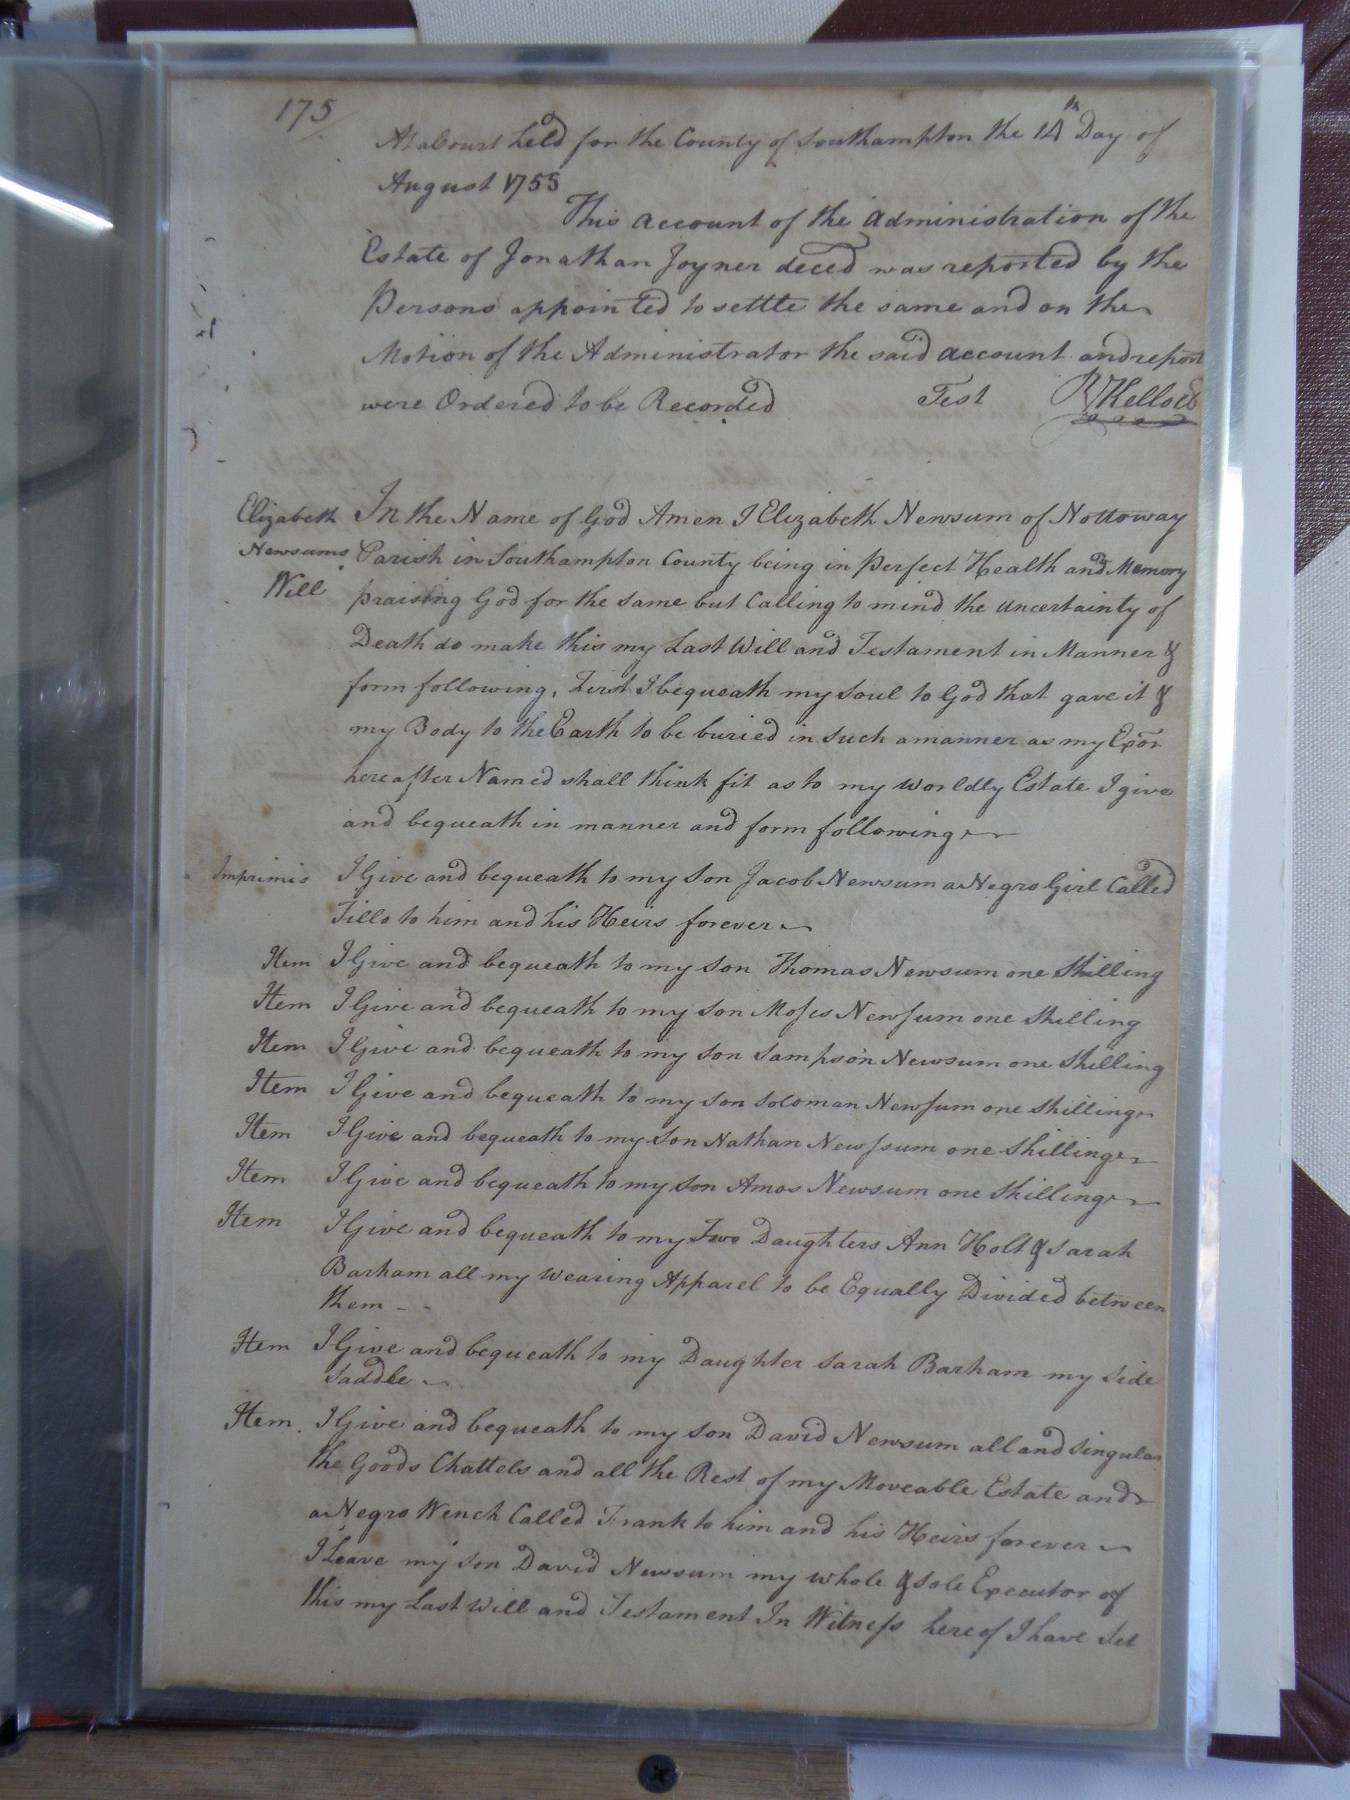 175
At a Court held for the County of Southampton the 14th Day of
August 1755
This account of the administration of the
Estate of Jonathan Joyner deced was reported by the
Persons appointed to settle the same and on the
Motion of the Administrator the said account and report
were Ordered to be Recorded Test R Kello
Elizabeth
Newsums
Will
In the Name of God Amen I Elizabeth Newsum of Nottoway
Parish in Southampton County being in Perfect Health and Memory
praising God for the same but Calling to mind the uncertainty of
Death do make this my Last Will and Testament in Manner &
form following, First I bequeath my Soul to God that gave it &
my Body to the Earth to be buried in such a manner as my Exor
hereafter Named shall think fit as to my worldly Estate I give
and bequeath in manner and form following
Imprimis I Give and bequeath to my Son Jacob Newsum a Negro Girl Called
Tillo to him and his Heirs forever
Item I Give and bequeath to my Son Thomas Newsum one Shilling
Item I Give and bequeath to my Son Moses Newsum one Shilling
Item I Give and bequeath to my Son Sampson Newsum one Shilling
Item I Give and bequeath to my Son Soloman Newsum one Shilling
Item I Give and bequeath to my Son Nathan Newssum one Shilling
Item I Give and bequeath to my Son Amos Newsum one Shilling
Item I Give and bequeath to my Two Daughters Ann Holt & Sarah
Barham all my Wearing Apparel to be Equally Divided between
them - -
Item I Give and bequeath to my Daughter Sarah Barham my Side
Saddle
Item. I Give and bequeath to my Son David Newsum all and Singular
the Goods Chattels and all the Rest of my Moveable Estate and
a Negro Wench Called Frank to him and his Heirs forever
I Leave my Son David Newsum my whole & Sole Executor of
this my Last Will and Testament In Witness hereof I have Set